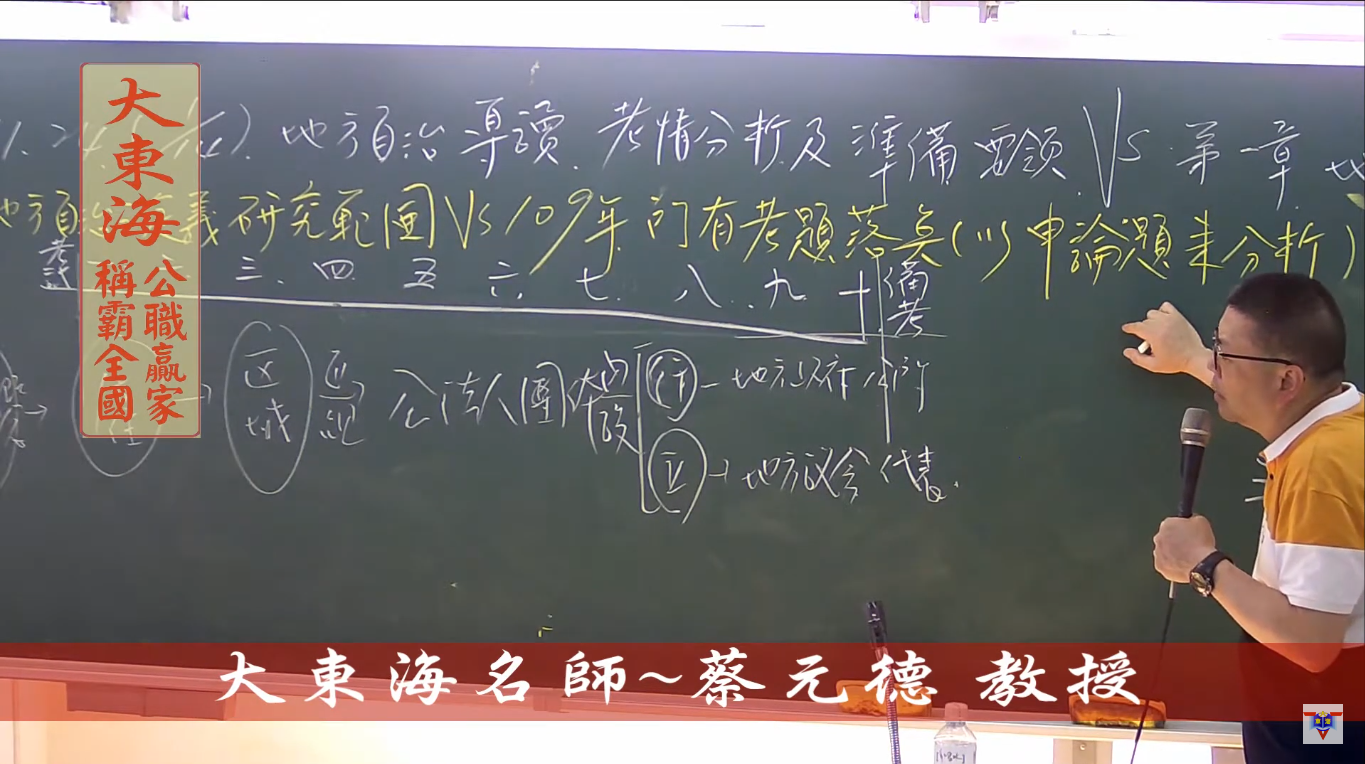 大東海
公職贏家
稱霸全國
地方自治導讀.考情分析及準備要領 VS.第一章.地
地方自治 義研究範圍VS 109年所有考題落點(以申論題来分析)
考試
三、四 五 六、七、八、九、十
備考
区域
公法人團体
內設
行 - 地方政府 公所
立 → 地方議会 代表.
大東海名師~蔡元德 教授